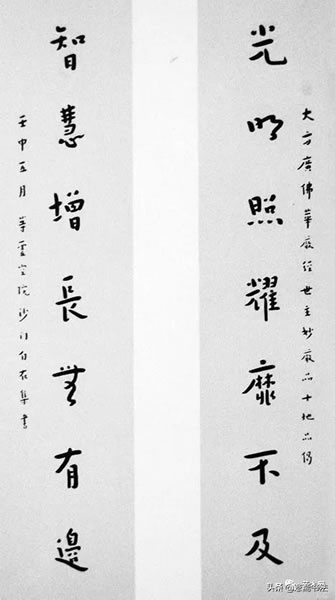 大方廣佛華嚴經世主妙嚴品十地品偈
光明照耀靡不及
智慧增長無有邊
壬申五月 院沙門集書
头条 书法